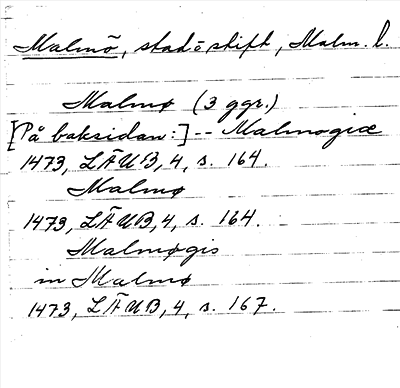 Malmö, stad o. stift, Malm. l.
Malmø (3 ggr.)
[På baksidan:] -- Malmogiæ
1473, LÄUB, 4, s. 164.
Malmø
1473, LÄUB, 4, s. 164.
Malmøgis
in Malmø
1473, LÄUB, 4, s. 167.